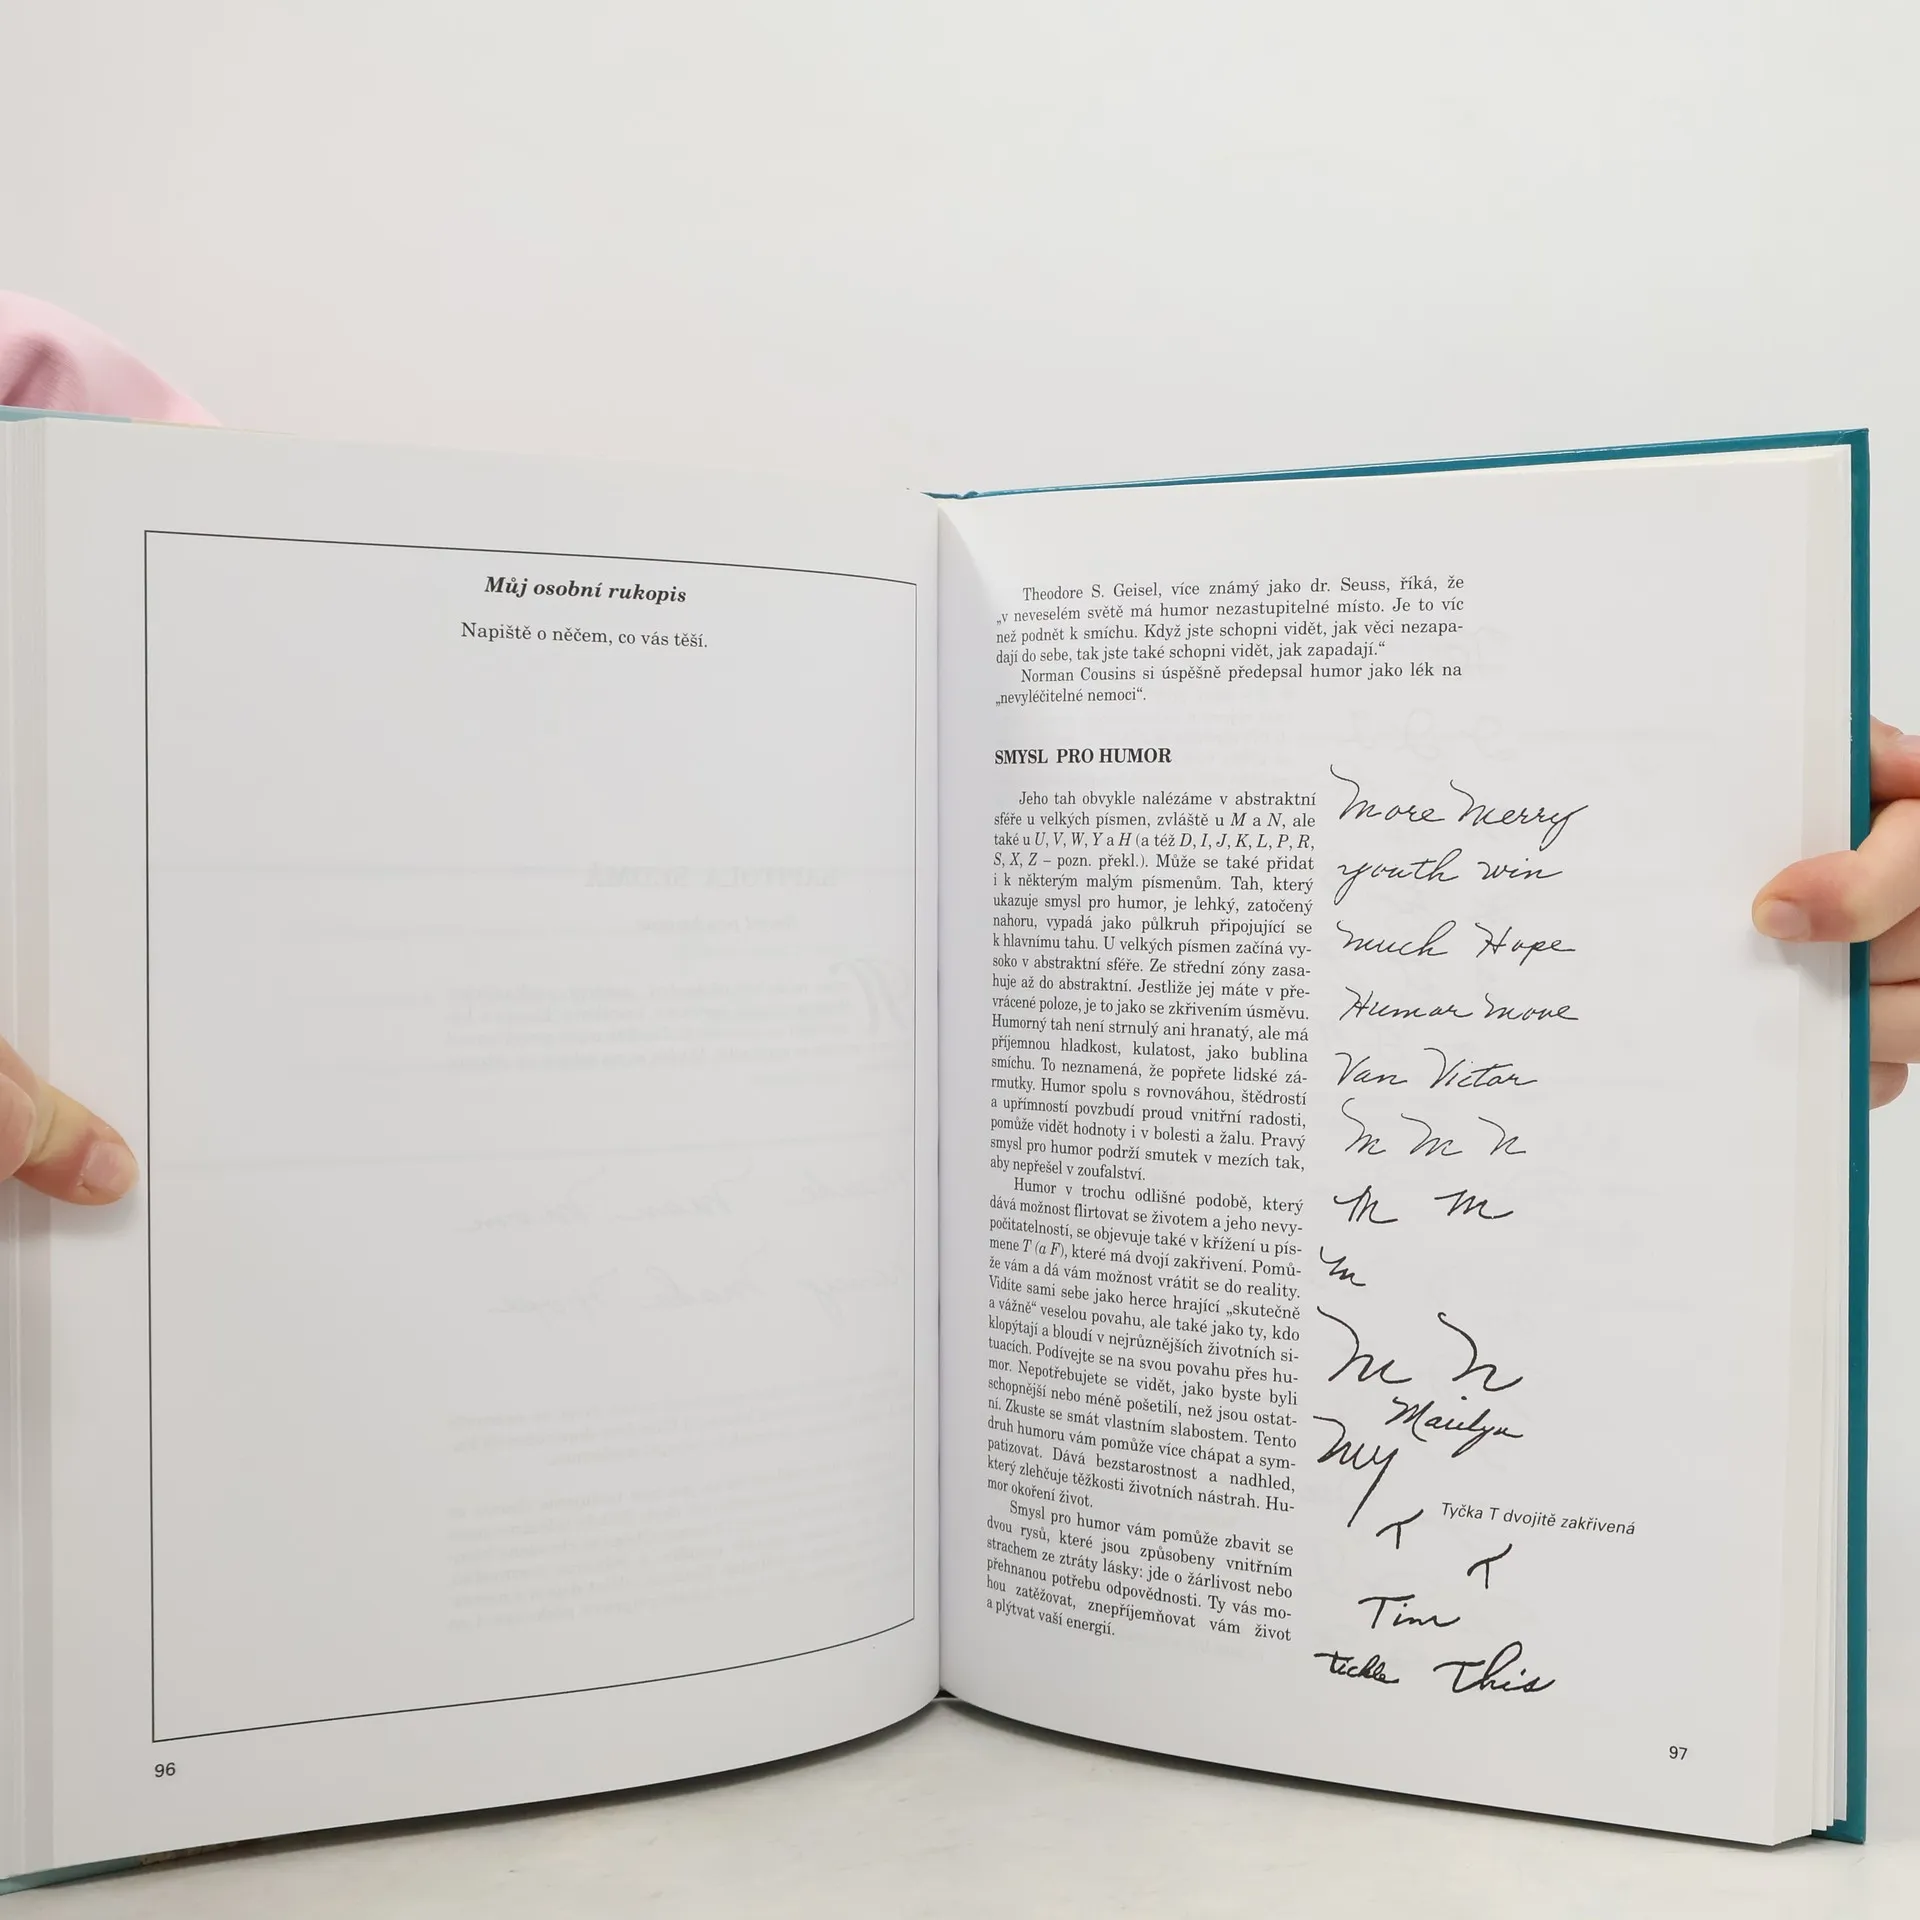 Můj osobní rukopis
Napiště o něčem, co vás těší.
96
Theodore S. Geisel, více známý jako dr. Seuss, říká, že
„v neveselém světě má humor nezastupitelné místo. Je to víc
než podnět k smíchu. Když jste schopni vidět, jak věci nezapa-
dají do sebe, tak jste také schopni vidět, jak zapadají.“
Norman Cousins si úspěšně předepsal humor jako lék na
„nevyléčitelné nemoci“.
SMYSL PRO HUMOR
Jeho tah obvykle nalézáme v abstraktní
sféře u velkých písmen, zvláště u M a N, ale
také u U, V, W, Y a H (a též D, I, J, K, L, P, R,
S, X, Z – pozn. překl.). Může se také přidat
i k některým malým písmenům. Tah, který
ukazuje smysl pro humor, je lehký, zatočený
nahoru, vypadá jako půlkruh připojující se
k hlavnímu tahu. U velkých písmen začíná vy-
soko v abstraktní sféře. Ze střední zóny zasa-
huje až do abstraktní. Jestliže jej máte v pře-
vrácené poloze, je to jako se zkřivením úsměvu.
Humorný tah není strnulý ani hranatý, ale má
příjemnou hladkost, kulatost, jako bublina
smíchu. To neznamená, že popřete lidské zá-
rmutky. Humor spolu s rovnováhou, štědrostí
a upřímností povzbudí proud vnitřní radosti,
pomůže vidět hodnoty i v bolesti a žalu. Pravý
smysl pro humor podrží smutek v mezích tak,
aby nepřešel v zoufalství.
Humor v trochu odlišné podobě, který
dává možnost flirtovat se životem a jeho nevy-
počitatelností, se objevuje také v křížení u pís-
mene T (a F), které má dvojí zakřivení. Pomů-
že vám a dá vám možnost vrátit se do reality.
Vidíte sami sebe jako herce hrající „skutečně
a vážně“ veselou povahu, ale také jako ty, kdo
klopýtají a bloudí v nejrůznějších životních si-
tuacích. Podívejte se na svou povahu přes hu-
mor. Nepotřebujete se vidět, jako byste byli
schopnější nebo méně pošetilí, než jsou ostat-
ní. Zkuste se smát vlastním slabostem. Tento
druh humoru vám pomůže více chápat a sym-
patizovat. Dává bezstarostnost a nadhled,
který zlehčuje těžkosti životních nástrah. Hu-
mor okoření život.
Smysl pro humor vám pomůže zbavit se
dvou rysů, které jsou způsobeny vnitřním
strachem ze ztráty lásky: jde o žárlivost nebo
přehnanou potřebu odpovědnosti. Ty vás mo-
hou zatěžovat, znepříjemňovat vám život
a plýtvat vaší energií.
More Merry
youth win
much Hope
Humor move
Van Victor
M M N
M M
m
M N
Marilyn
My
Tyčka T dvojitě zakřivená
T
T
Tim
tickle This
97